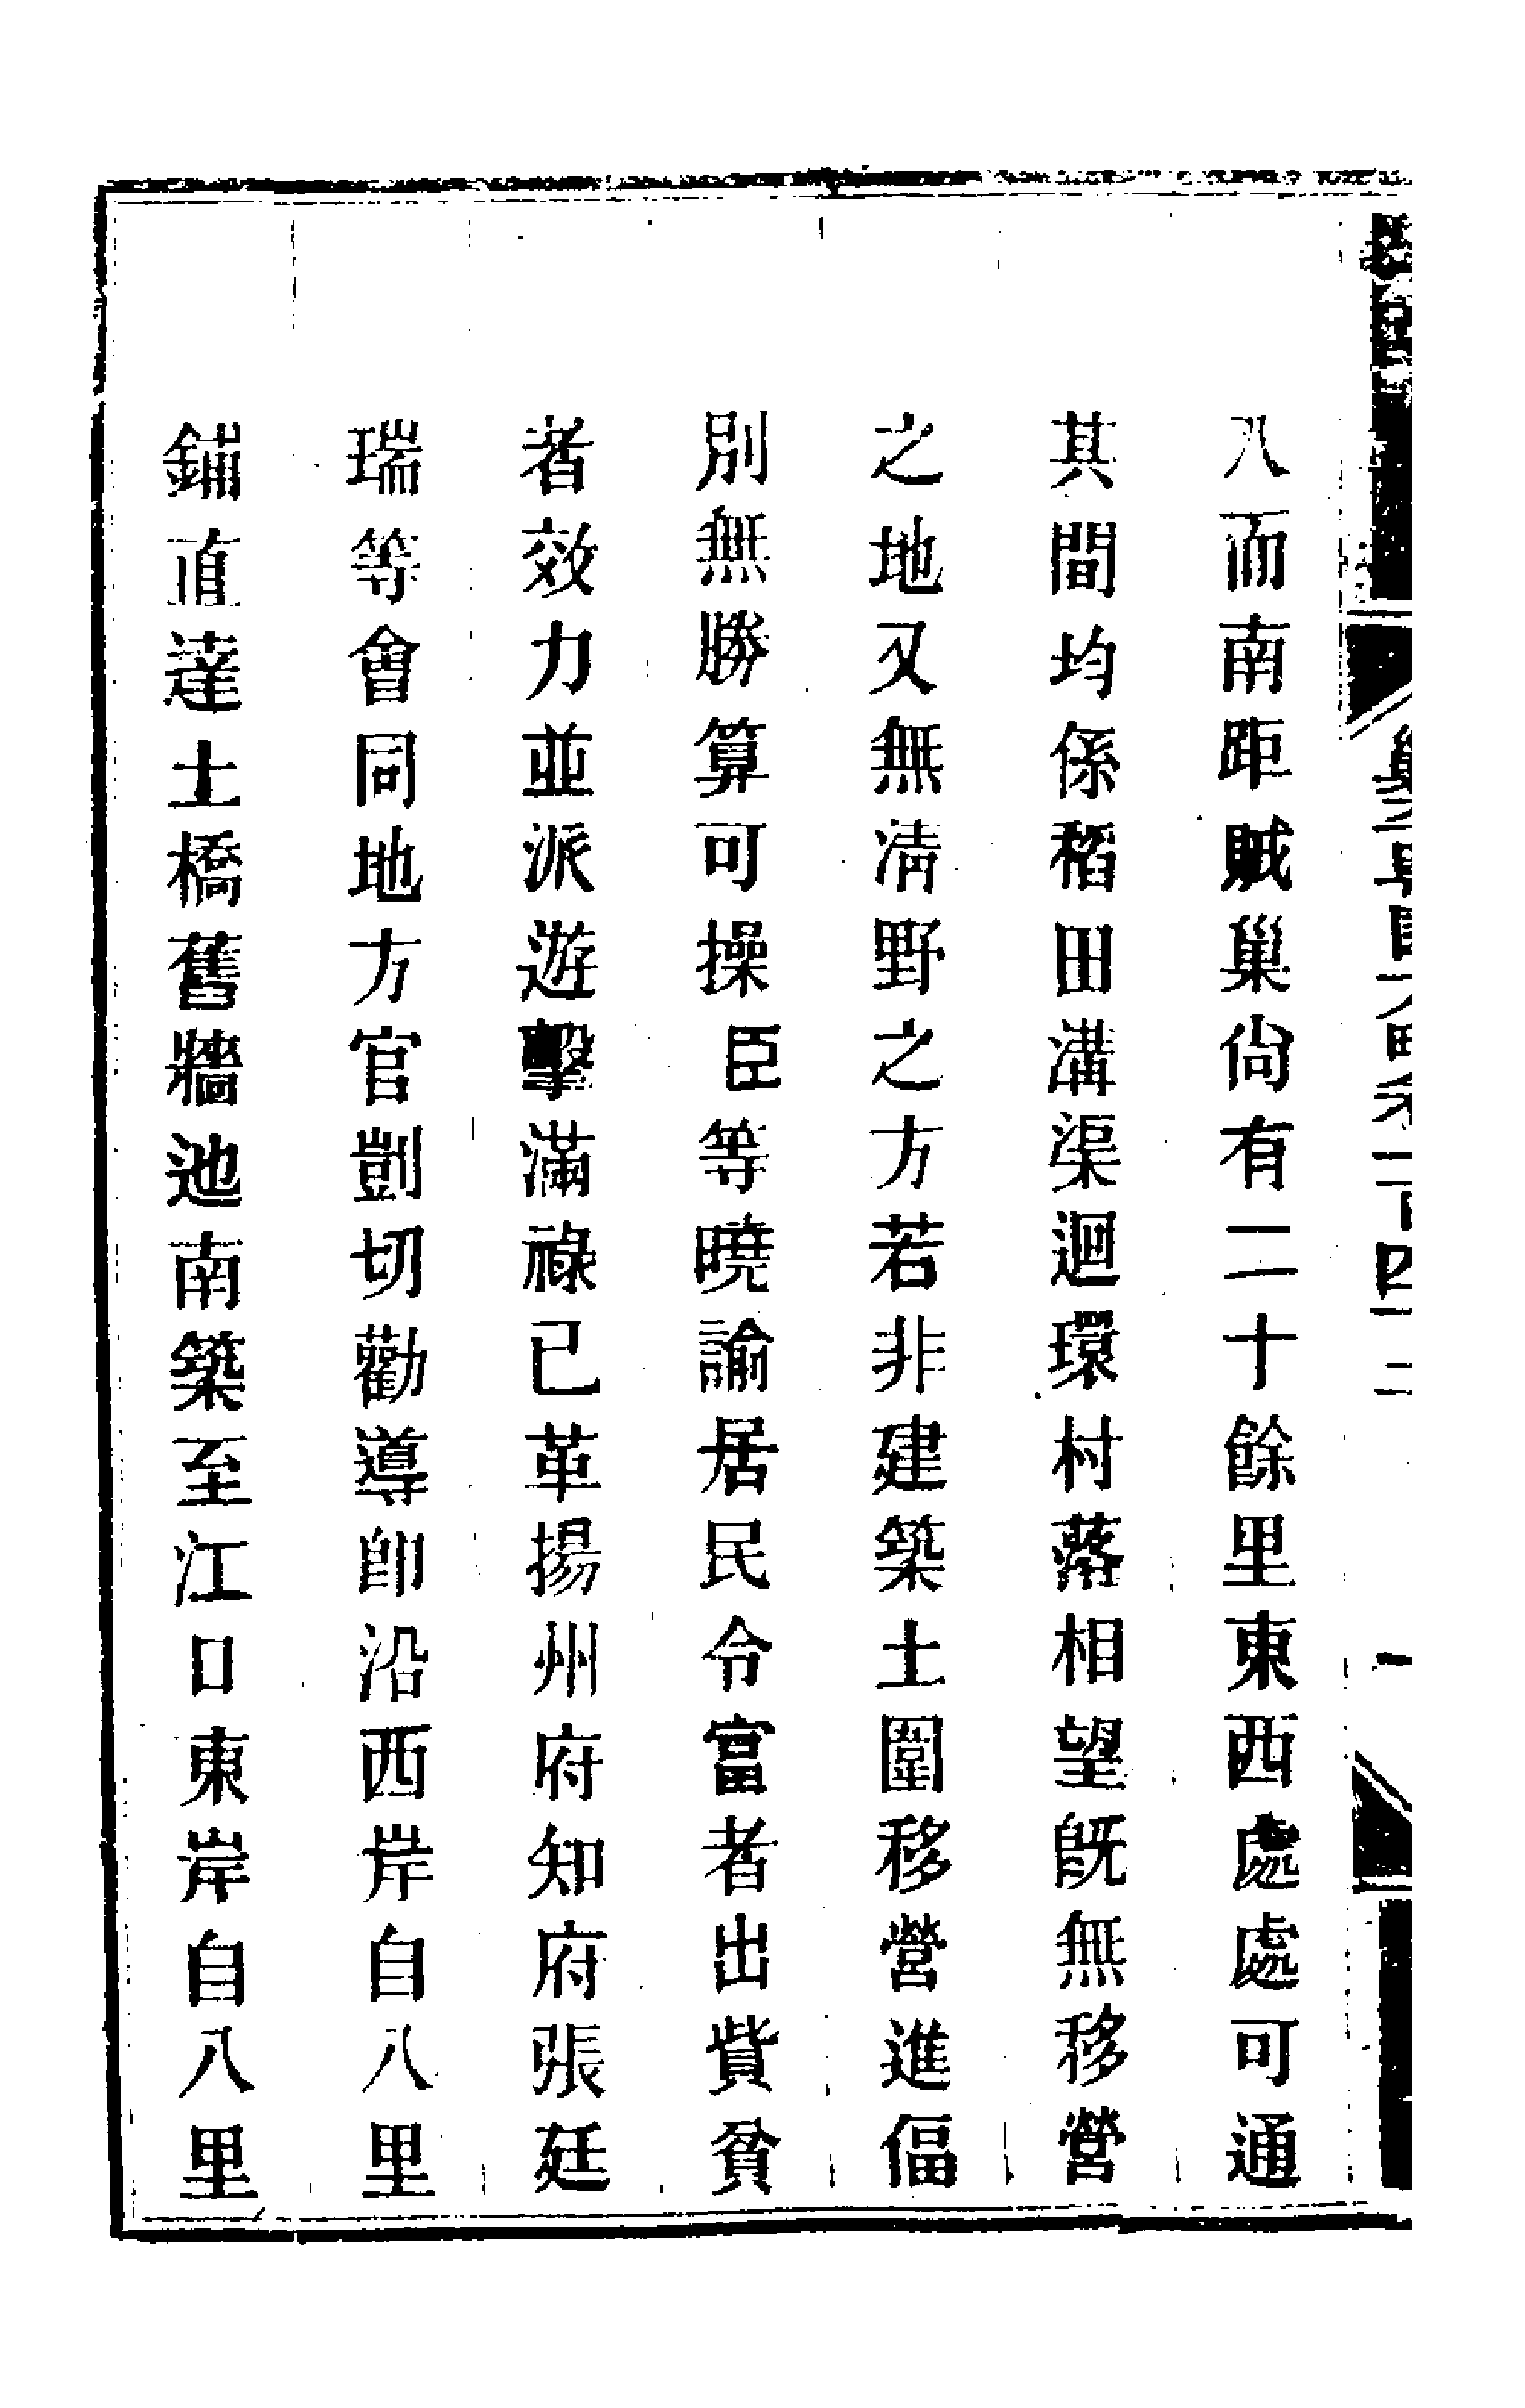 八而南距賊巢尙有二十餘里東西處處可通
其間均係稻田溝渠迴環村落相望旣無移營
之地又無淸野之方若非建築土圍移營進偪
別無勝算可操臣等曉諭居民令富者出貲貧
者效力並派遊擊滿祿已革揚州府知府張廷
瑞等會同地方官剴切勸導卽沿西岸自八里
鋪直達土橋舊牆迆南築至江口東岸自八里